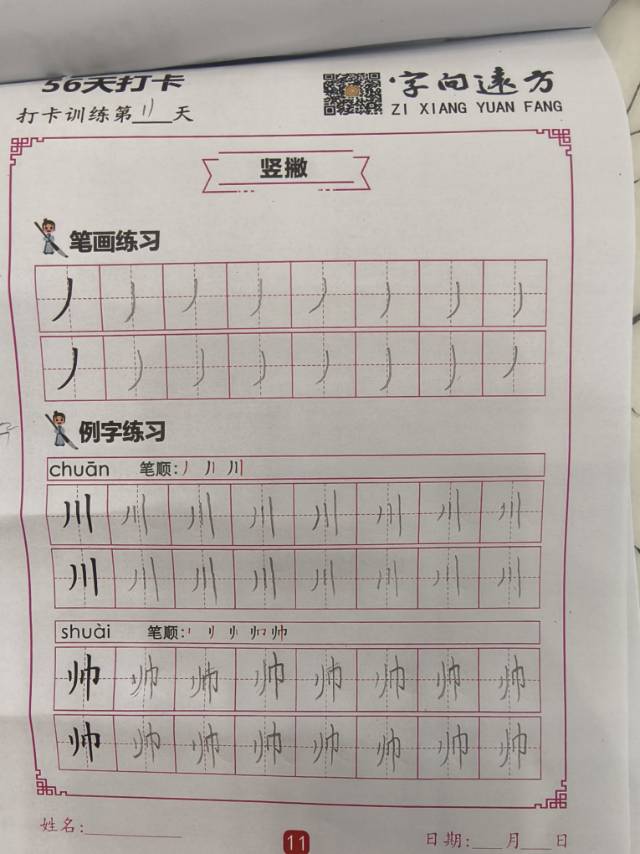 56天打卡
字问远方
ZI XIANG YUAN FANG
打卡训练第11天
竖撇
笔画练习
丿丿丿丿丿丿丿丿
丿丿丿丿丿丿丿丿
例字练习
chuān 笔顺:丿 丿丨 川
川川川川川川川川
川川川川川川川川
shuài 笔顺:
帅帅帅帅帅帅帅帅
帅帅帅帅帅帅帅帅
姓名:
11
日期: 月 日